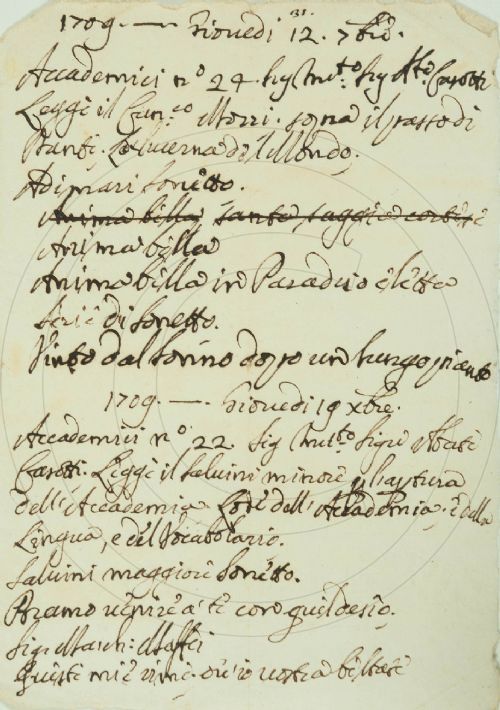 31.
1709. — Giovedi 12. 7bre.
Accademici n.o 24. Sig.
Leggè il Can.co Morri. sopra il passo di
Dante. La lucerna del Mondo.
Adimari sonetto.
Anima bella santa saggia
Anima bella
Anima bella in Paradiso eletta
Serie di sonetto.
Vinto dal sonno dopo un lungo pianto
1709. — Giovedi 19 xbre.
Accademici n.o 22. Sig Abate
Casotti. Leggè il Salvini minore p l'apertura
dell'Accademia. Lode dell'Accademia. e della
Lingua, e del Vocabolario.
Salvini maggiore sonetto.
Bramo venire a te con quel desio.
Sig. March: Maffei
Queste mie rime. ov'io vostra beltate